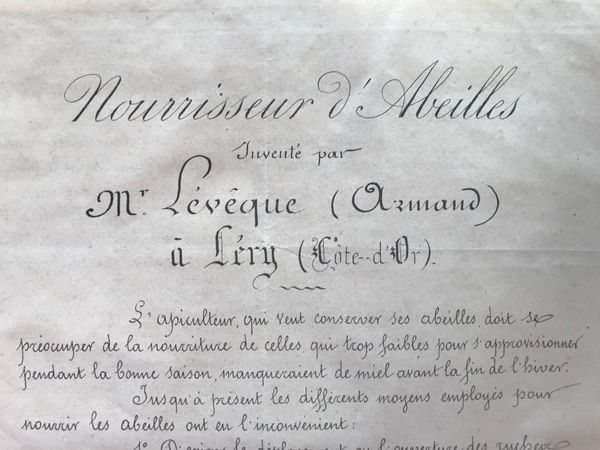 Nourrisseur d'Abeilles
Inventé par
Mr. Lévêque (Armand)
à Léry (Côte-d'Or).
L'apiculteur, qui veut conserver ses abeilles, doit se
préoccuper de la nourriture de celles, qui trop faibles pour s'approvisionner
pendant la bonne saison, manqueraient de miel avant la fin de l'hiver.
Jusqu'à présent les différents moyens employés pour
nourrir les abeilles ont eu l'inconvénient:
1° D'exiger le déplacement ou l'ouverture des ruches